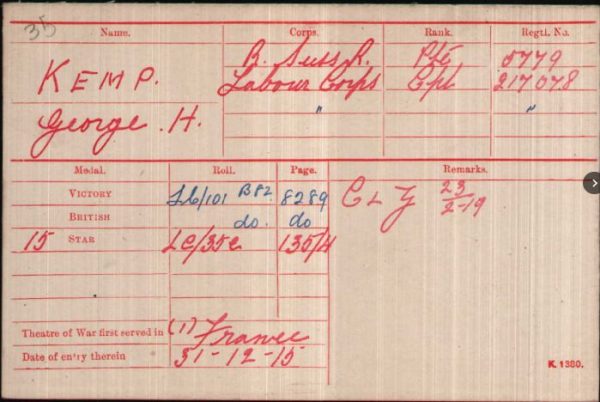 35
Name. Corps. Rank. Regtl. No.
KEMP. R. Suss R. Pte 5779
Labour Corps Cpl 217078
George. H. " "
Medal. Roll. Page. Remarks.
VICTORY L6/101 B82 8289 Cl Z 23/2-19
BRITISH do. do
15 STAR LC/35c 135/4
Theatre of War first served in (1) France
Date of entry therein 31-12-15
K. 1380.